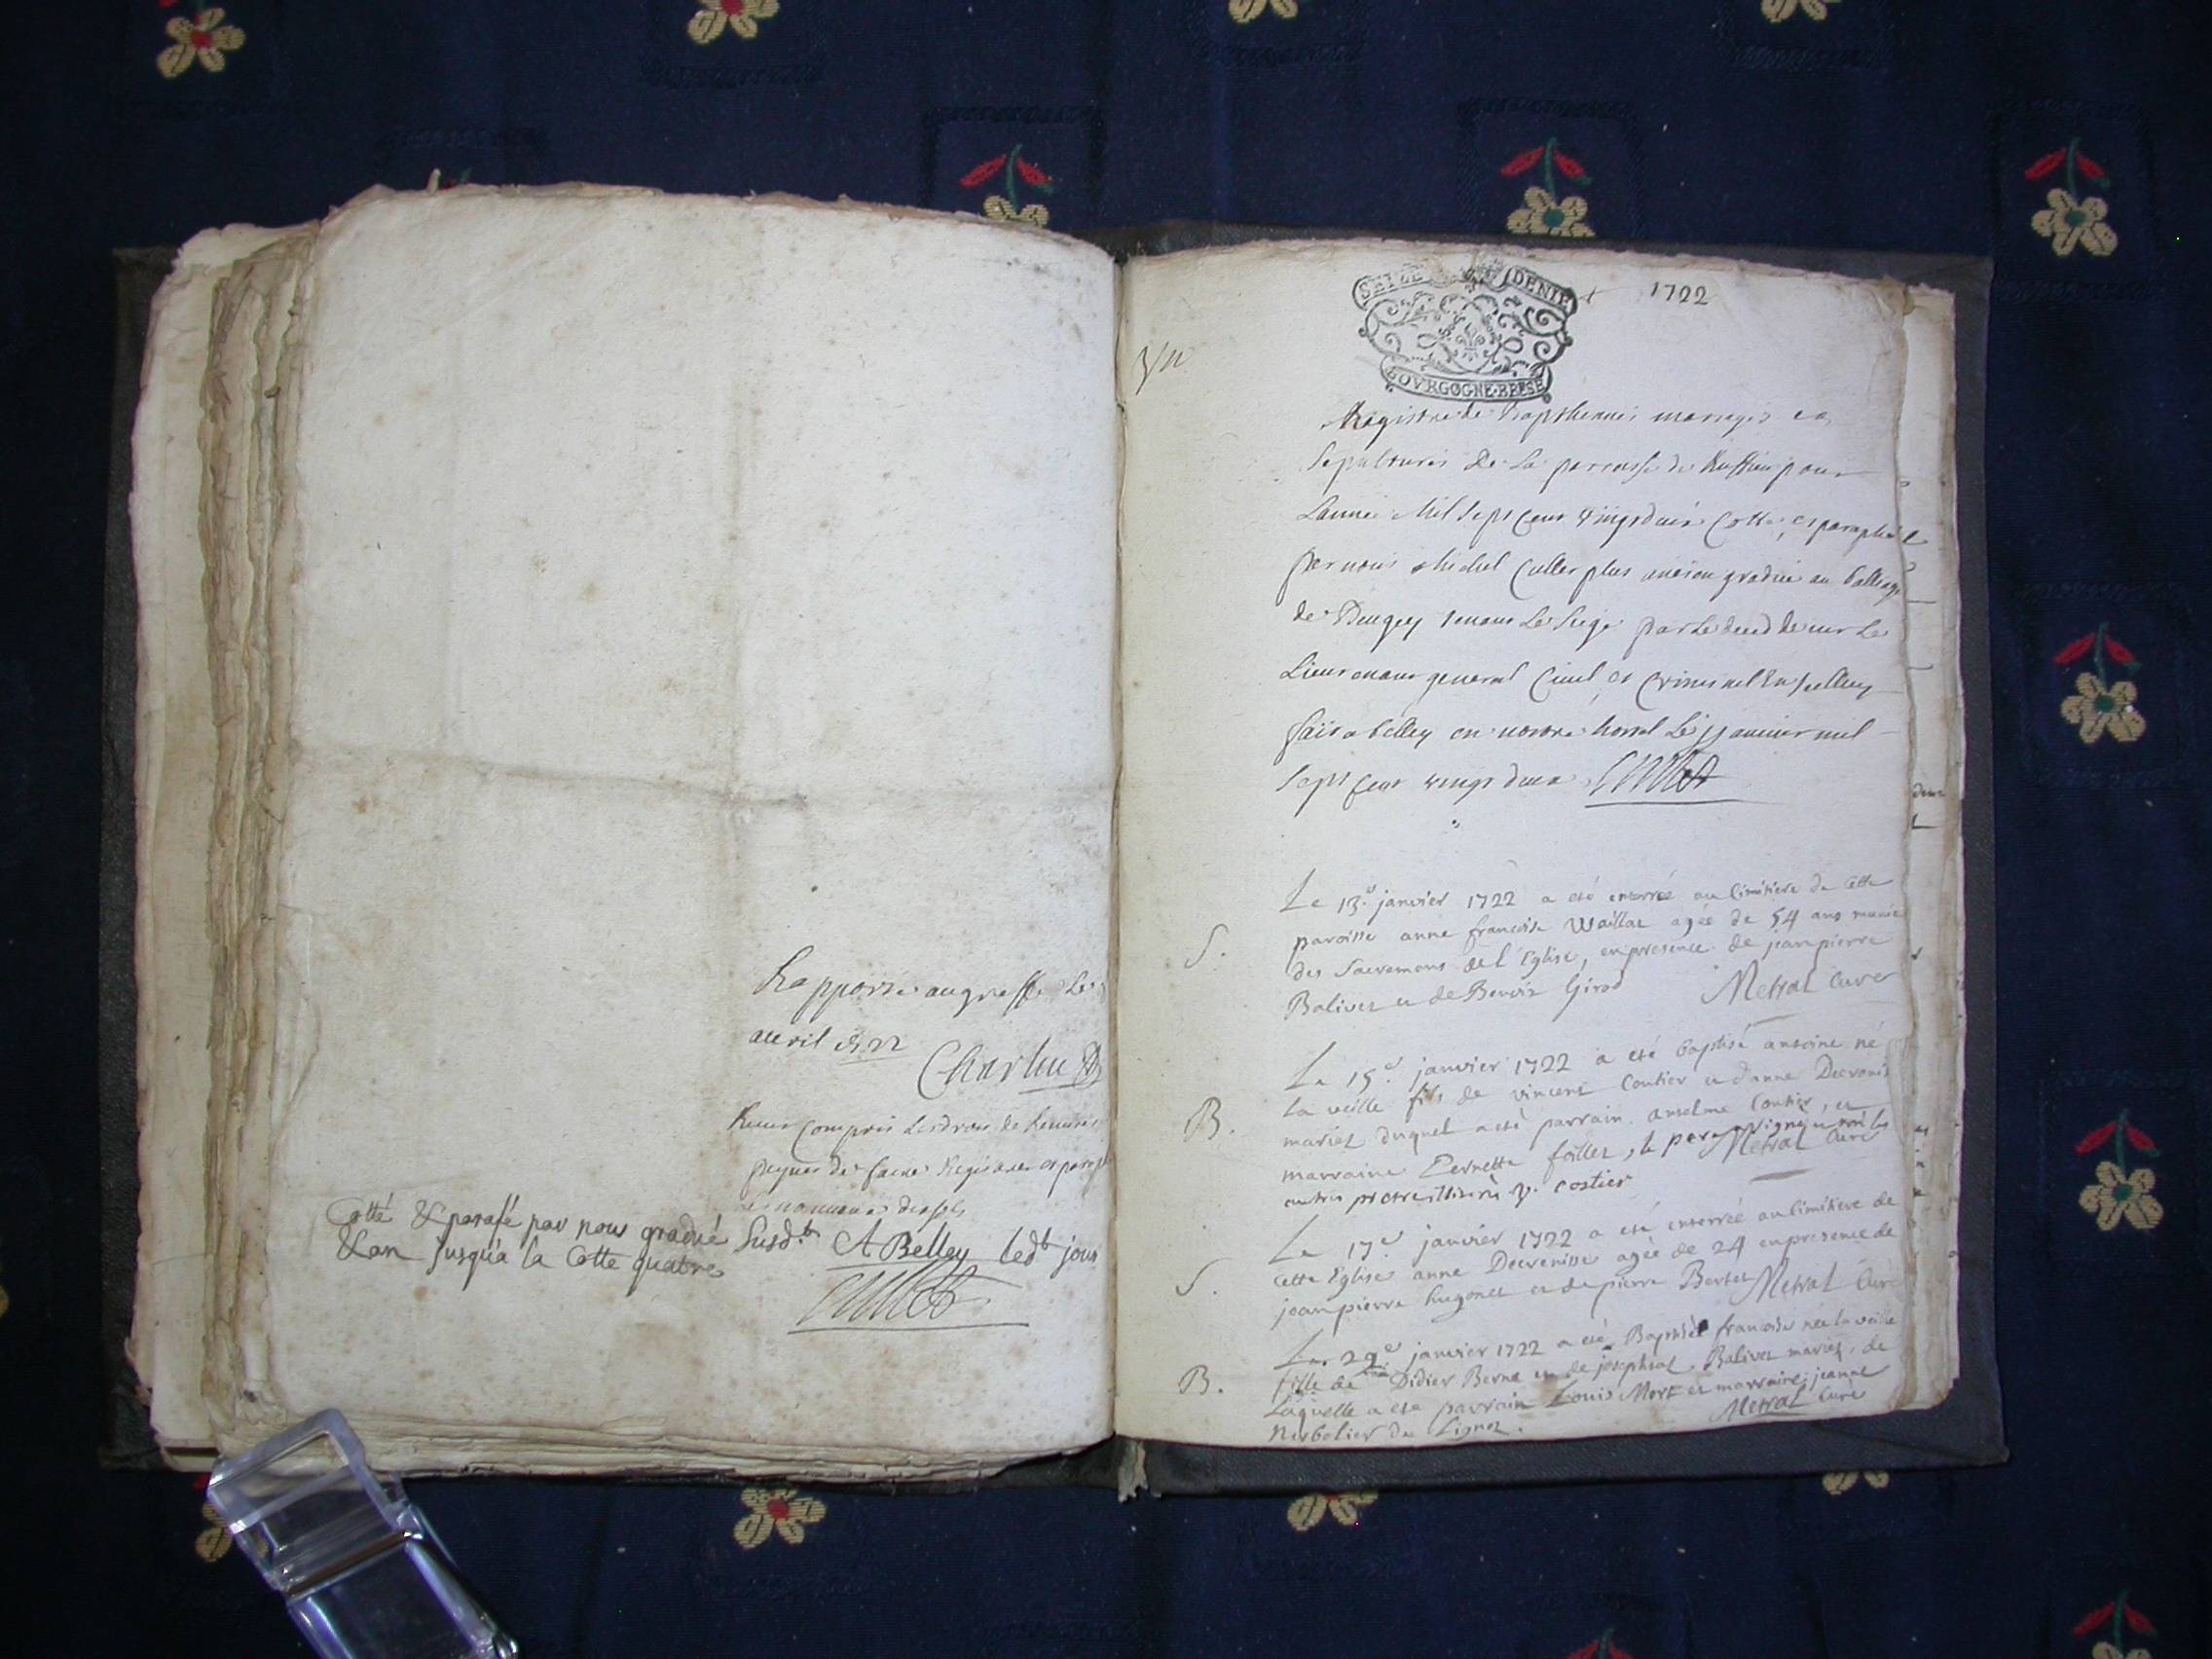 Rapporté au greffe le
avril 1722
Charlin
payer de faire Registrer et paraph
Cotté & parafé par nous gradué susd.t A Belley led.t jour
& an jusqu'a la Cotte quatre
Cullet
1722
DENIE
BOVRGOGNE·BRESSE
Registre de Bapthemes mariages et
sepultures de la parroisse de Ruffieu pour
lannée Mil sept cent vingt deux Cotté et paraphé
par nous Michel Cullet plus ancien gradué au balliage
de Bugey tenant le siege
Lieutenant general Civil et Criminel
fait a belley en nostre hostel le janvier mil
sept cent vingt deux Cullet
S.
Le 13.e janvier 1722 a eté enterrée au Cimitiere de cette
paroisse anne francoise agée de 54 ans munie
des Sacremens de l'Eglise, en presence de jean pierre
Balivet et de Benoit Girod Metral Curé
B.
Le 15.e janvier 1722 a eté baptisé antoine né
la veille fils de vincent Coutier et d'anne Decronis
mariez duquel a eté parrain anselme Coutier, et
marraine Pernette le pere signé et non les
autres Metral Curé
S.
Le 17.e janvier 1722 a eté enterrée au Cimitiere de
cette Eglise anne Decrenisse agée de 24 en presence de
jean pierre hugonet et de pierre Bertet Metral Curé
B.
Le 29.e janvier 1722 a eté Baptisée francoise née la veille
fille de Didier Berne et de josephte Balivet mariez, de
laquelle a eté parrain Louis Mort et marraine jeanne
de Lignot. Metral Curé